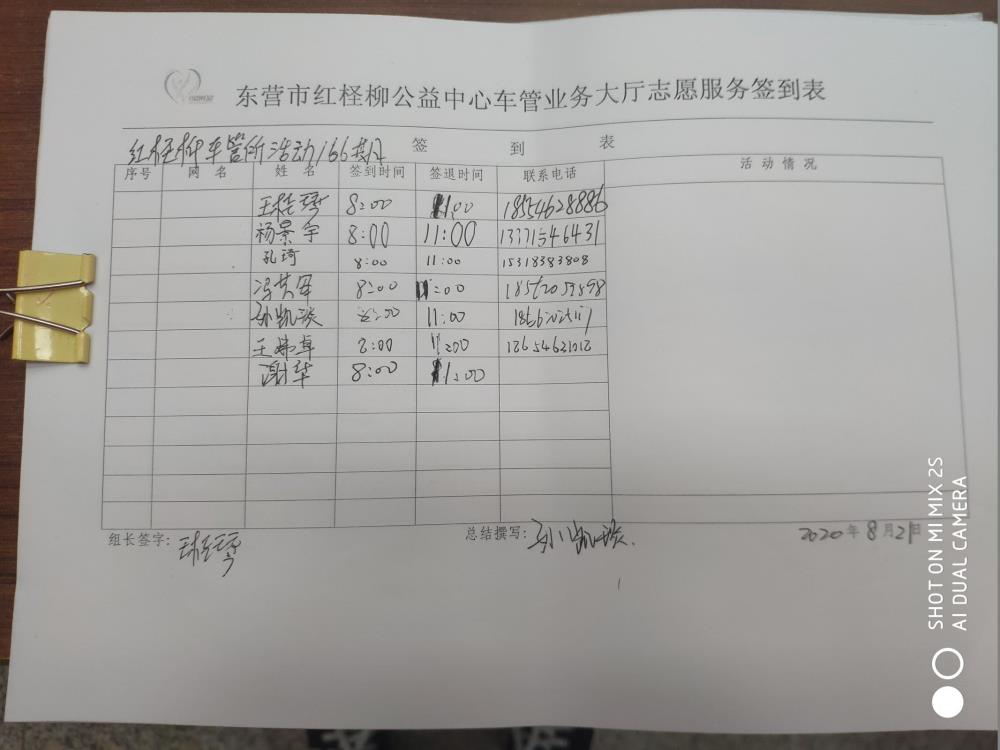 东营市红柽柳公益中心车管业务大厅志愿服务签到表
签 到 表
红柽柳车管所活动166期
序号 网 名 姓 名 签到时间 签退时间 联系电话 活动情况
王桂琴 8:00 11:00 18554628886
杨景宇 8:00 11:00 13371546431
孔琦 8:00 11:00 15318383808
8:00 11:00
孙凯谈 8:00 11:00
8:00 11:00
谢华 8:00 11:00
组长签字: 王桂琴 总结撰写: 孙凯谈. 2020年8月21日
SHOT ON MI MIX 2S
AI DUAL CAMERA